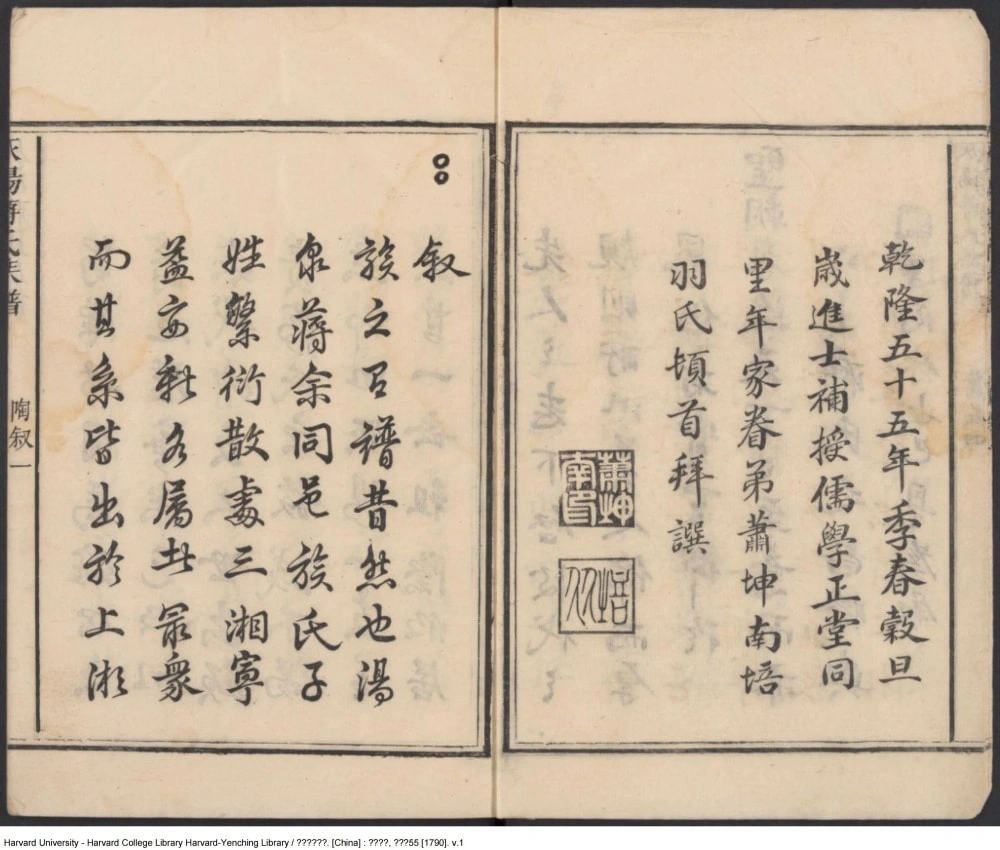 乾隆五十五年季春穀旦
歲進士補授儒學正堂同
里年家眷弟蕭坤南培
羽氏頓首拜譔
蕭坤南印
培羽
叙
族之有譜昔然也湯
泉蔣余同邑族氏子
姓繁衍散處三湘寧
益安新各屬此冣衆
而其系皆出於上湘
蔣氏族譜
陶叙一
Harvard University - Harvard College Library Harvard-Yenching Library / ??????. [China] : ????, ???55 [1790]. v.1